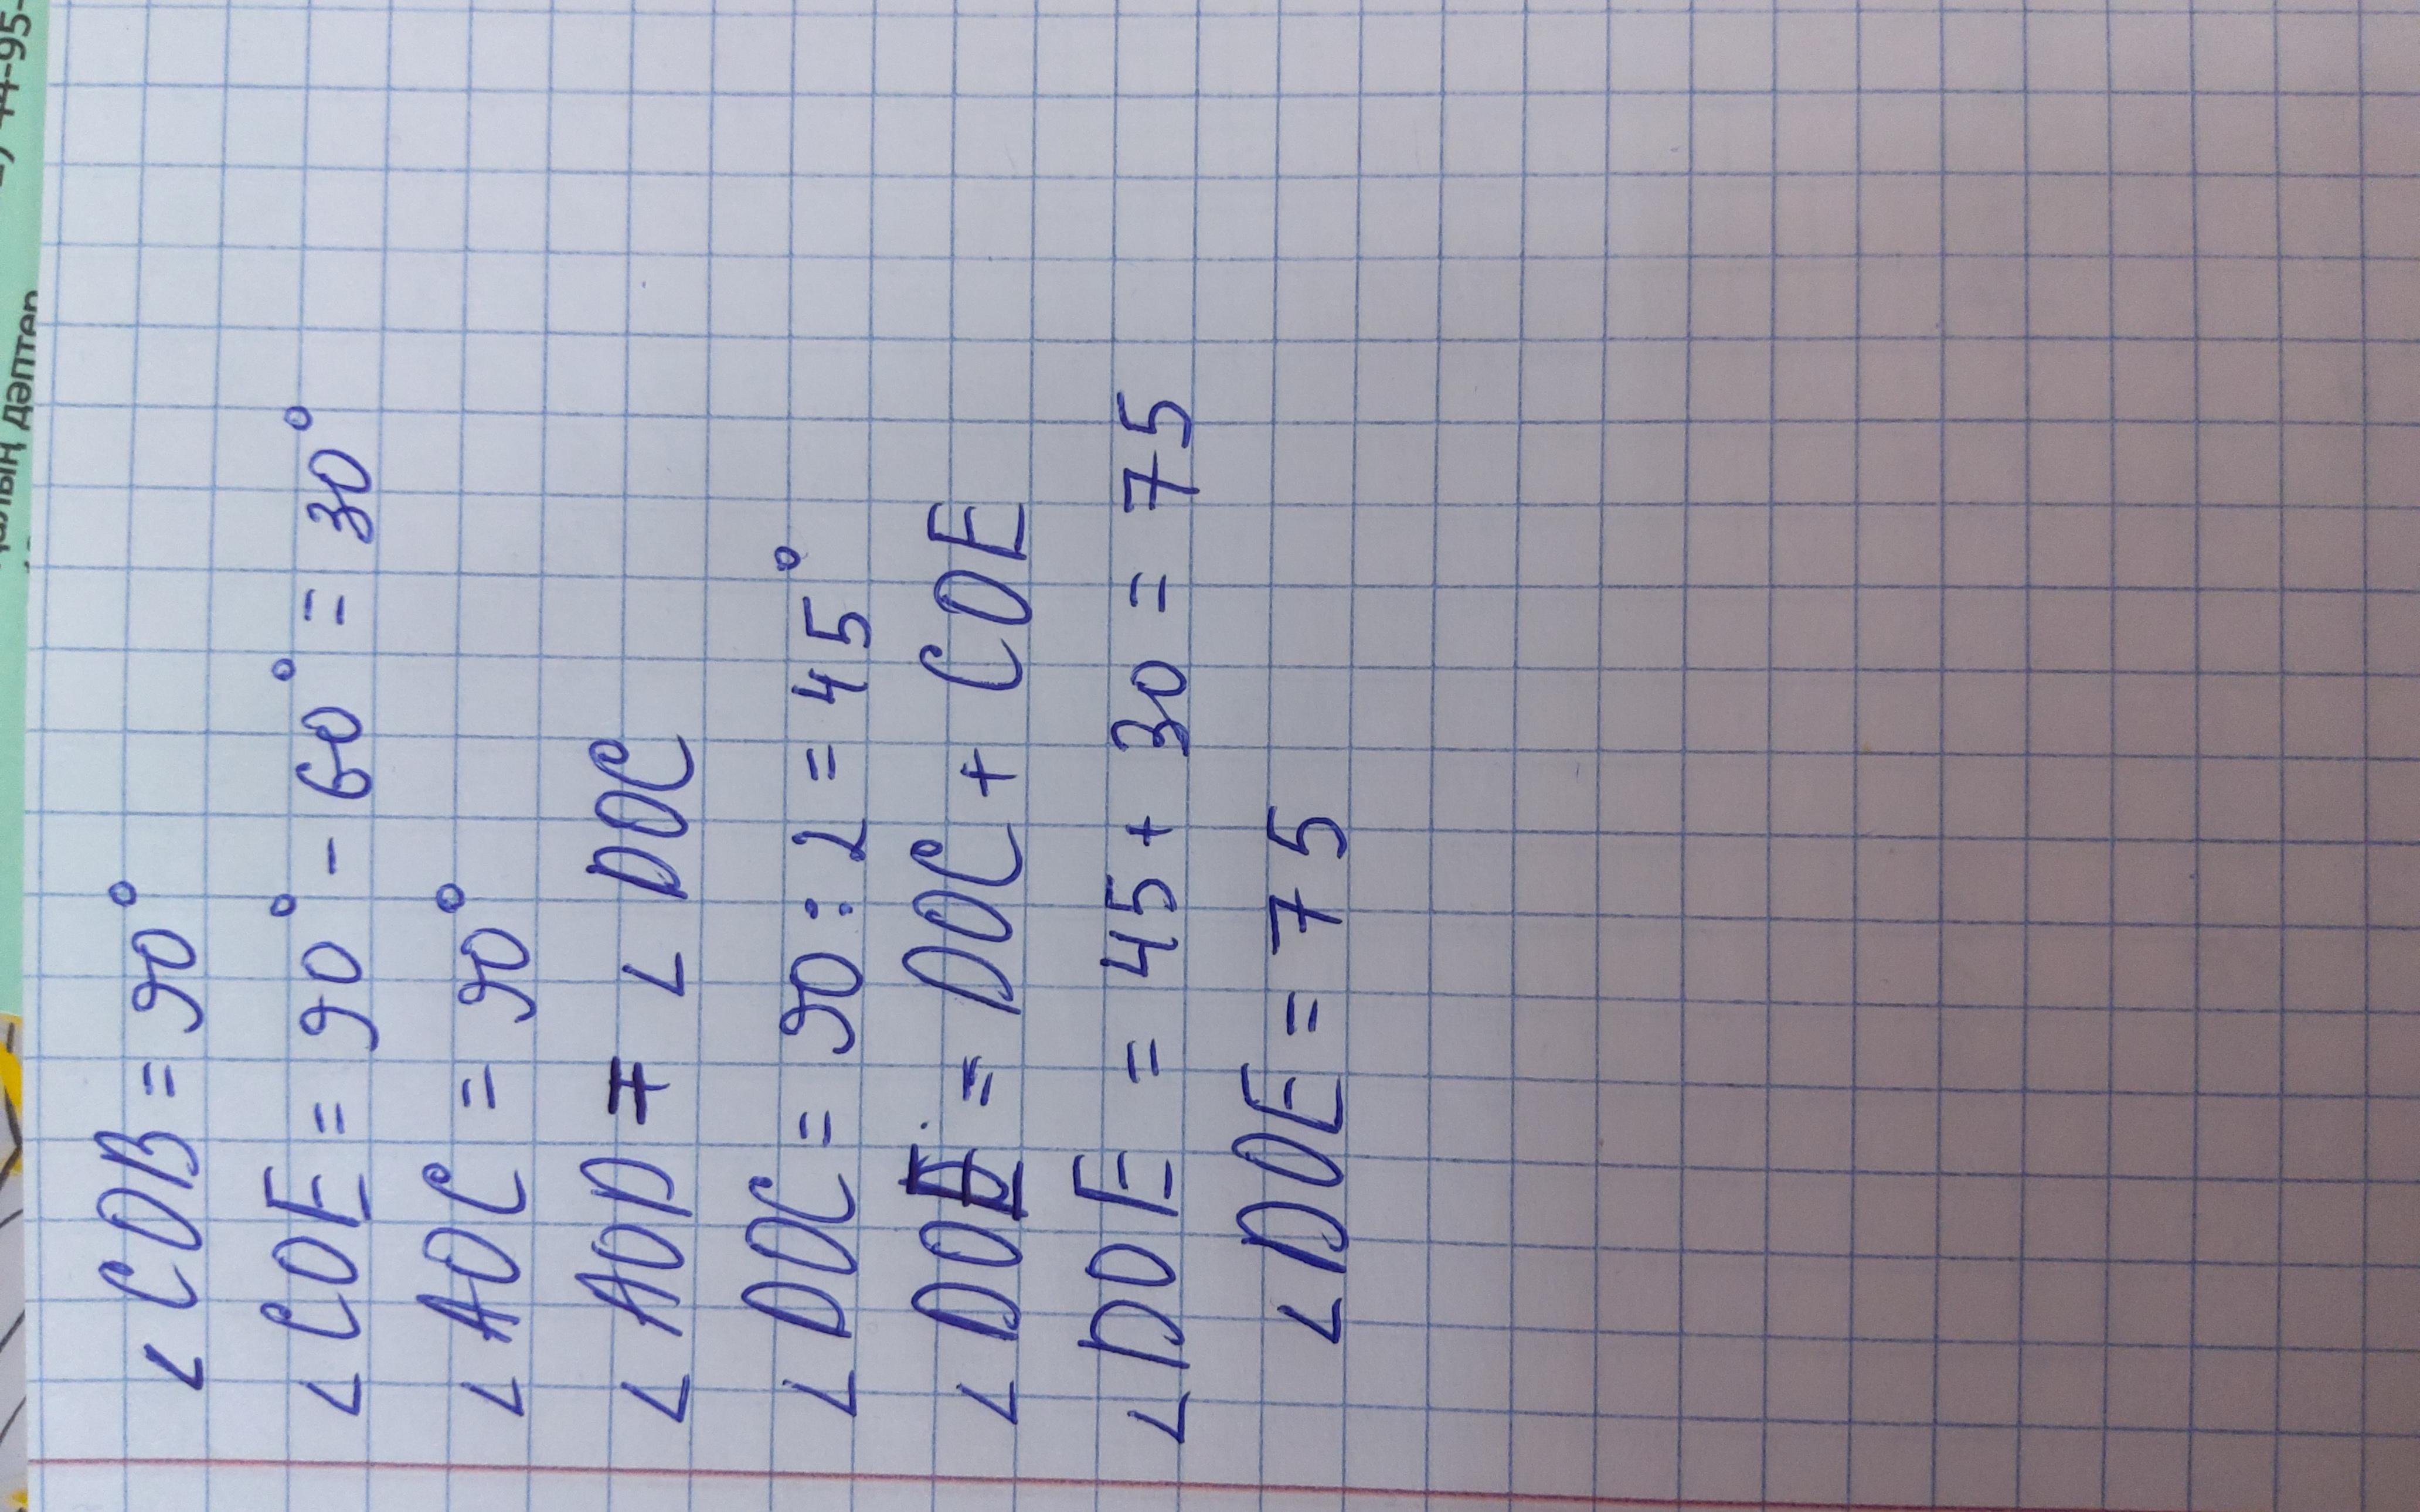 ∠COB = 90°
∠COE = 90° - 60° = 30°
∠AOC = 90°
∠AOD = ∠DOC
∠DOC = 90 : 2 = 45°
∠DOE = DOC + COE
∠DOE = 45 + 30 = 75
∠DOE = 75
44-95-
дәптер